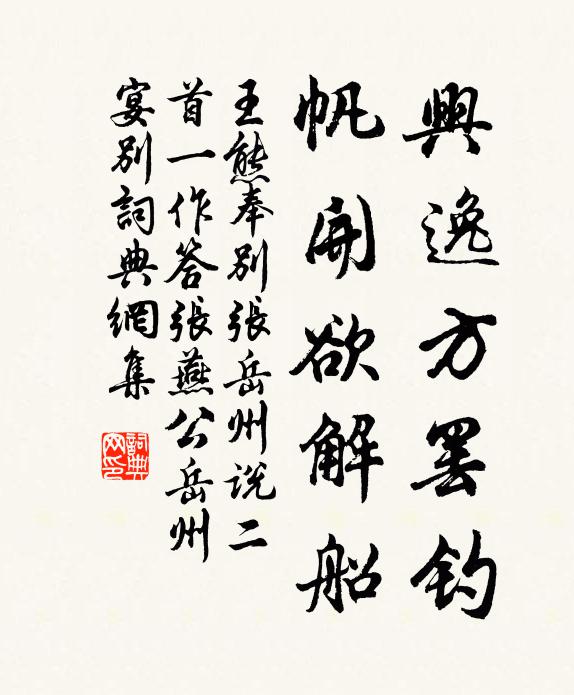 興逸方罢钓
帆開欲解船
王熊奉别張岳州说二
首一作答張燕公岳州
宴别詞典網集
詞典
网印